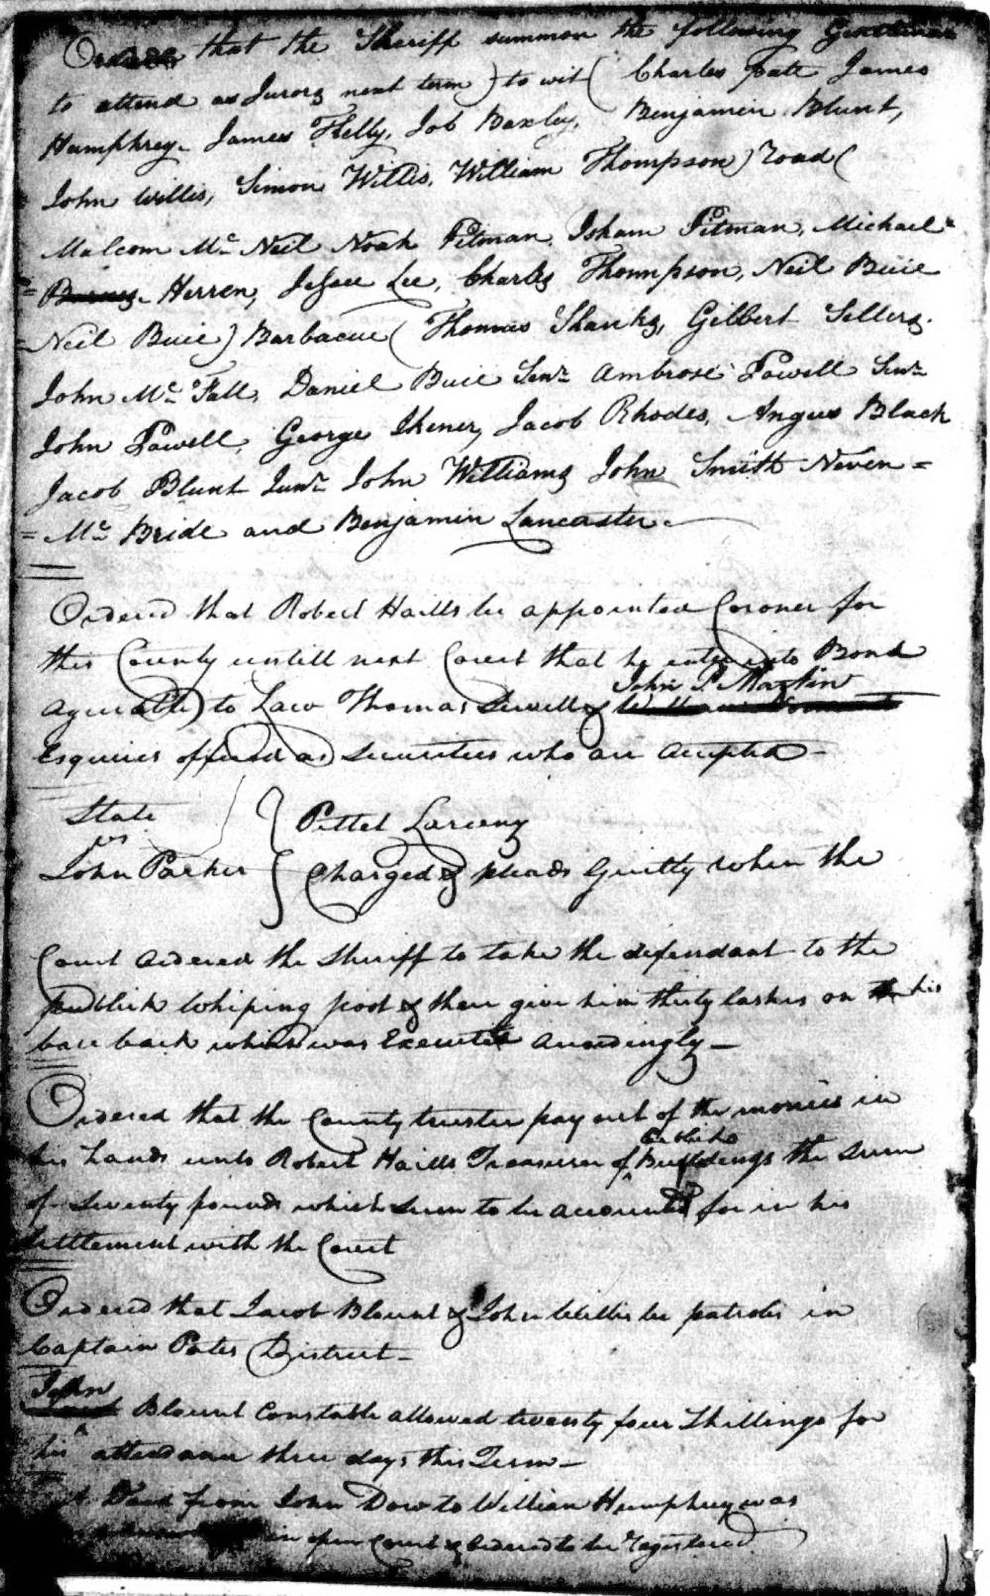 Ordered that the Sheriff summon the following Gentlemen
to attend as Jurors next term) to wit ( Charles Pate James
Humphrey. James Kelly, Job Baxley, Benjamin Blunt,
John Willis, Simon Willis, William Thompson) Road (
Malcom Mc Neil Noah Pitman, Isham Pitman, Michael
= Barnes Herren, Jessee Lee, Charles Thompson, Neil Buie
Neil Buie) Barbacue ( Thomas Shanks, Gilbert Sellers.
John Mc Fall, Daniel Buie Senr Ambrose Powell Senr
John Powell, George Ikener, Jacob Rhodes, Angus Black
Jacob Blunt Junr John Williams John Smith Neven =
= Mc Bride and Benjamin Lancaster.
Ordered that Robert Hails be appointed Coroner for
this County untill next Court that he enter into Bond
John P Martin
agreeable to Law Thomas Sewell &
Esquires offered as Securities who are accepted –
State
vs
John Parker
Pettet Larceny
Charged & pleads Guilty when the
Court ordered the Sheriff to take the defendant to the
publick Whiping post & there give him thirty lashes on his
bare back which was Executed accordingly –
Ordered that the County trustee pay out of the monies in
his hands unto Robert Hails Treasurer of Publick Buildings the Sum
of Seventy pounds which sum to be accounted for in his
Settlement with the Court
Ordered that Jacob Blount & John Willis be patrolers in
Captain Pates District –
John Blount Constable allowed twenty four Shillings for
his attendance three days this Term –
A Deed from John Dow to William Humphrey was
in open Court & Ordered to be Registered